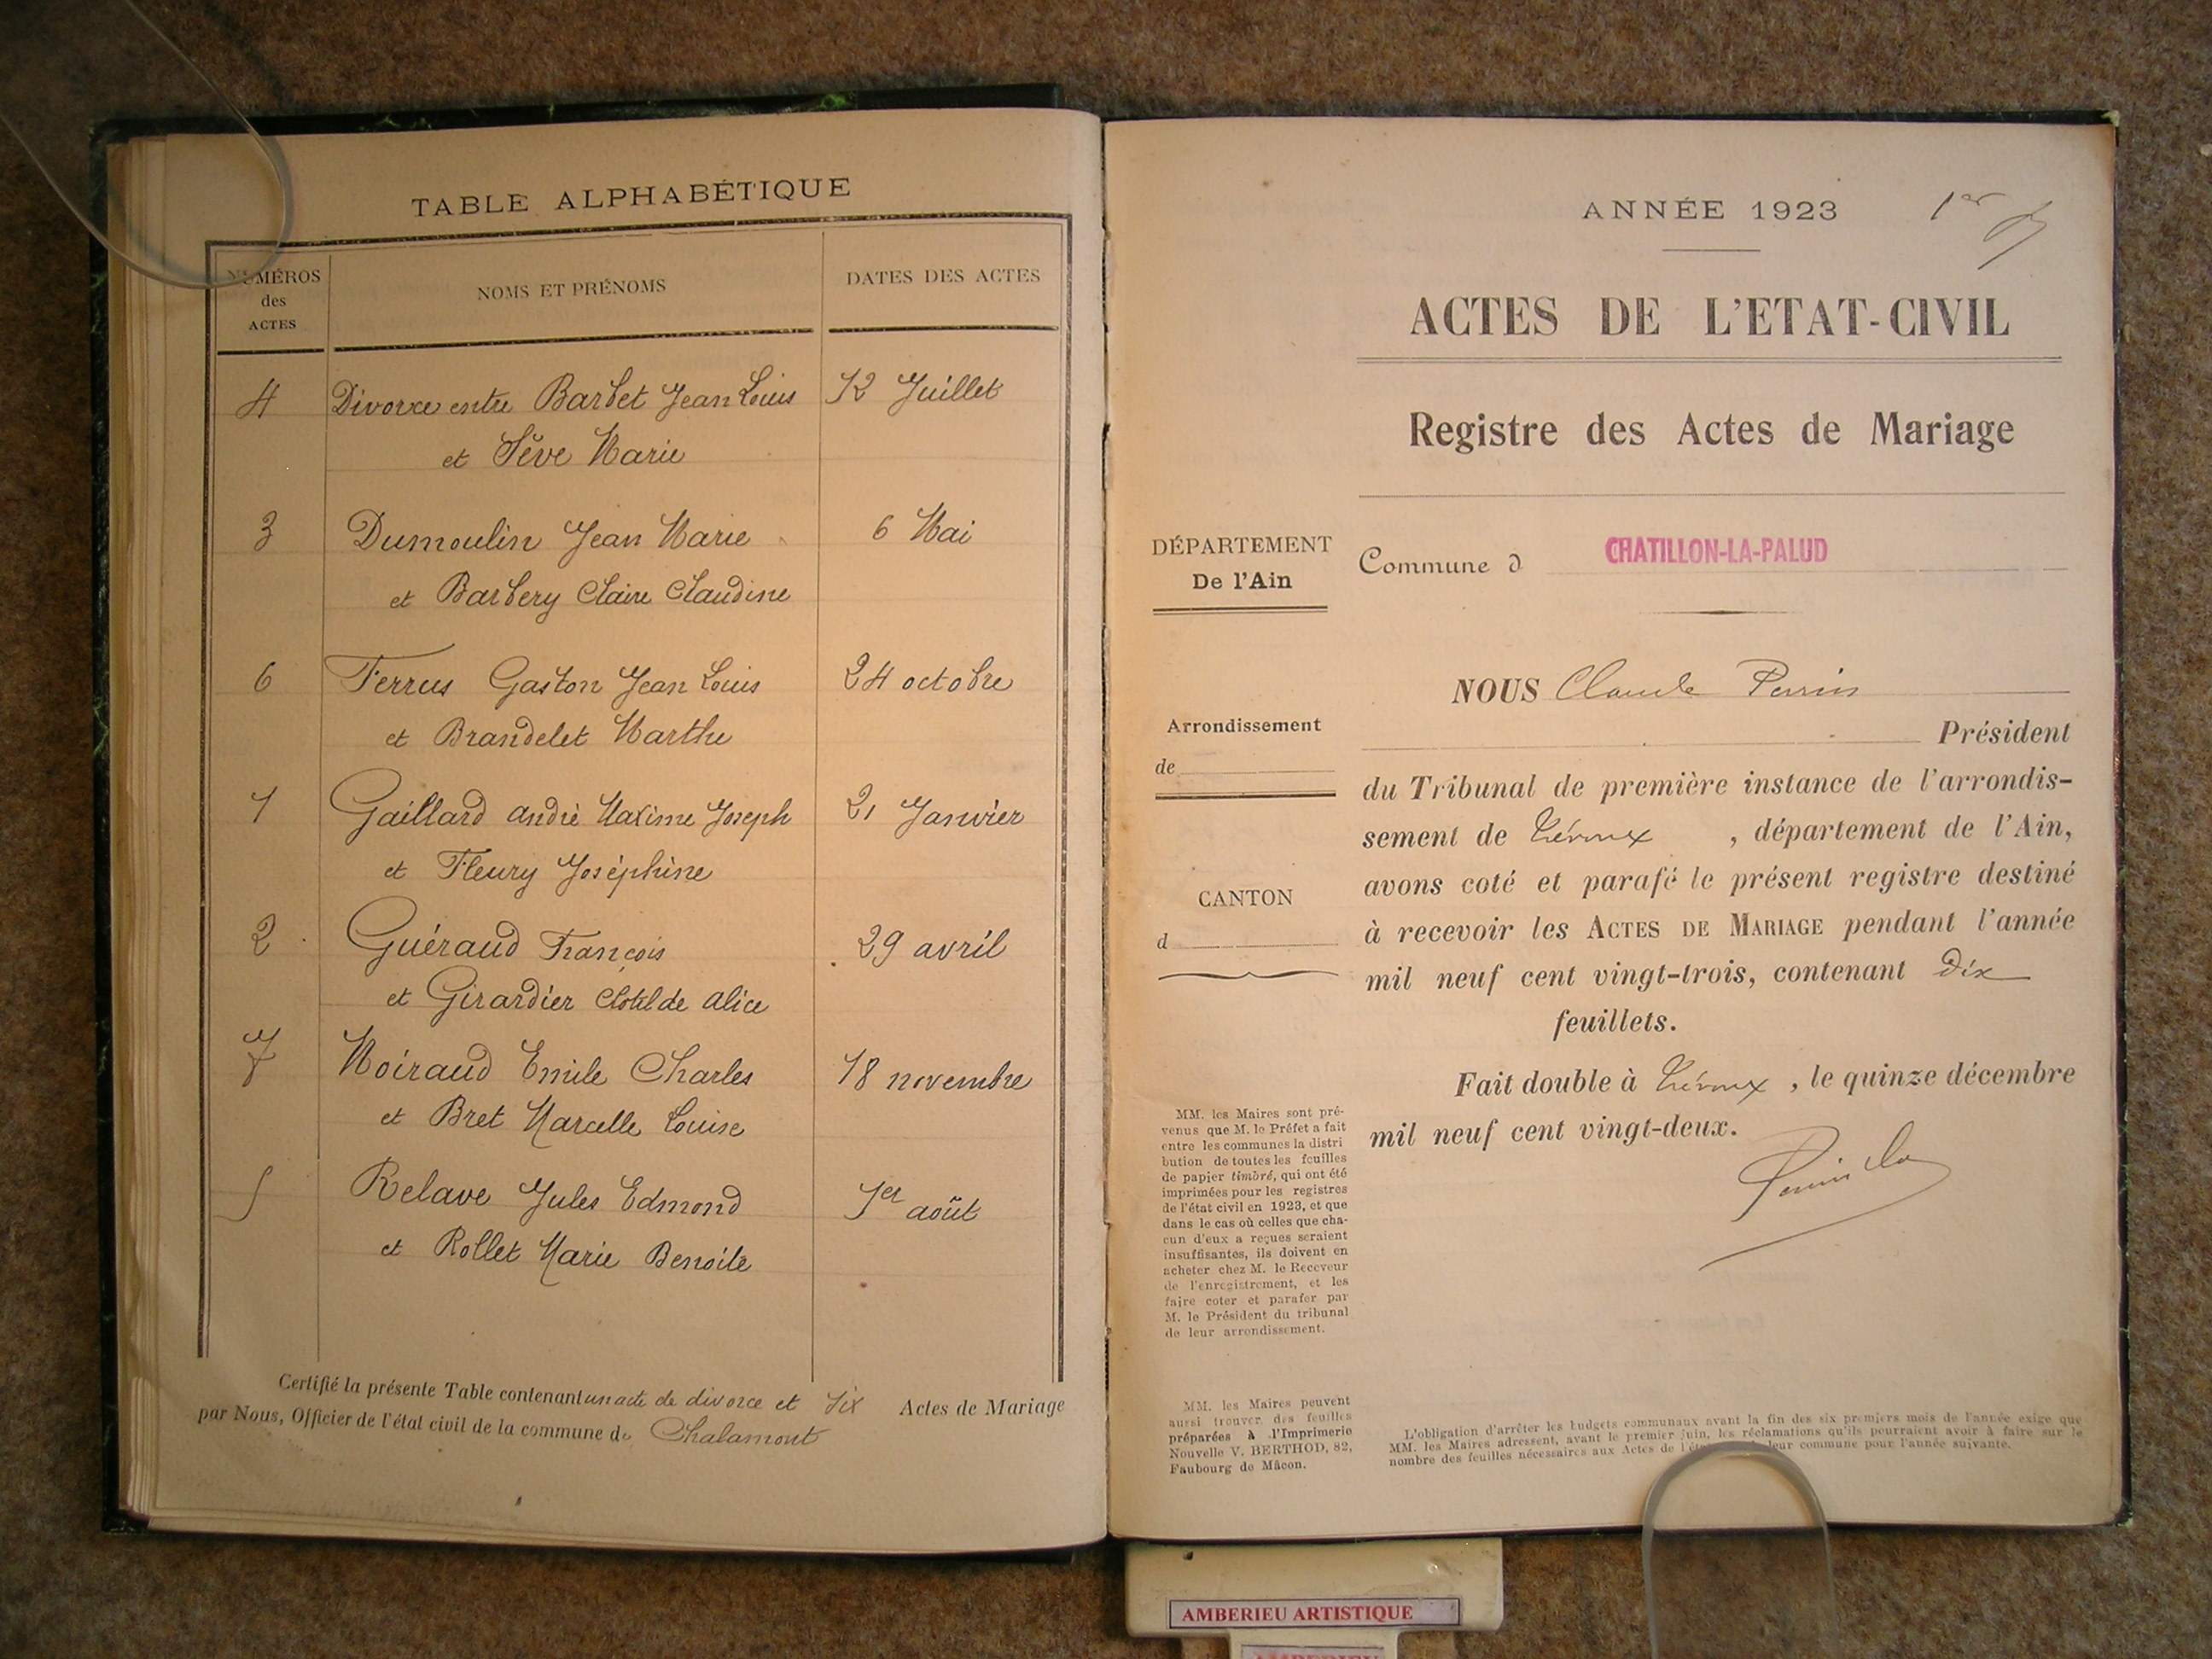 TABLE ALPHABÉTIQUE
NUMÉROS
des
ACTES
NOMS ET PRÉNOMS
DATES DES ACTES
4 Divorce entre Barbet Jean Louis 12 Juillet
et Sève Marie
3 Dumoulin Jean Marie 6 Mai
et Barbery Claire Claudine
6 Ferrus Gaston Jean Louis 24 octobre
et Brandelet Marthe
1 Gaillard André Maxime Joseph 21 Janvier
et Fleury Joséphine
2 Guéraud François 29 avril
et Girardier Clotilde Alice
7 Moiraud Emile Charles 18 novembre
et Bret Marcelle Louise
5 Relave Jules Edmond 1er août
et Rollet Marie Benoite
Certifié la présente Table contenant un acte de divorce et six Actes de Mariage
par Nous, Officier de l'état civil de la commune de Chalamont
ANNÉE 1923 1er
ACTES DE L'ETAT-CIVIL
Registre des Actes de Mariage
DÉPARTEMENT
De l'Ain
Commune d CHATILLON-LA-PALUD
Arrondissement
de
CANTON
d
NOUS Claude Perrin
Président
du Tribunal de première instance de l'arrondis-
sement de Trévoux, département de l'Ain,
avons coté et parafé le présent registre destiné
à recevoir les ACTES DE MARIAGE pendant l'année
mil neuf cent vingt-trois, contenant Dix
feuillets.
Fait double à Trévoux, le quinze décembre
mil neuf cent vingt-deux.
MM. les Maires sont pré-
venus que M. le Préfet a fait
entre les communes la distri
bution de toutes les feuilles
de papier timbré, qui ont été
imprimées pour les registres
de l'état civil en 1923, et que
dans le cas où celles que cha-
cun d'eux a reçues seraient
insuffisantes, ils doivent en
acheter chez M. le Receveur
de l'enregistrement, et les
faire coter et parafer par
M. le Président du tribunal
de leur arrondissement.
MM. les Maires peuvent
aussi trouver des feuilles
préparées à l'Imprimerie
Nouvelle V. BERTHOD, 82,
Faubourg de Mâcon.
L'obligation d'arrêter les budgets communaux avant la fin des six premiers mois de l'année exige que
MM. les Maires adressent, avant le premier juin, les réclamations qu'ils pourraient avoir à faire sur le
nombre des feuilles nécessaires aux Actes de leur commune pour l'année suivante.
AMBERIEU ARTISTIQUE
AMBERIEU